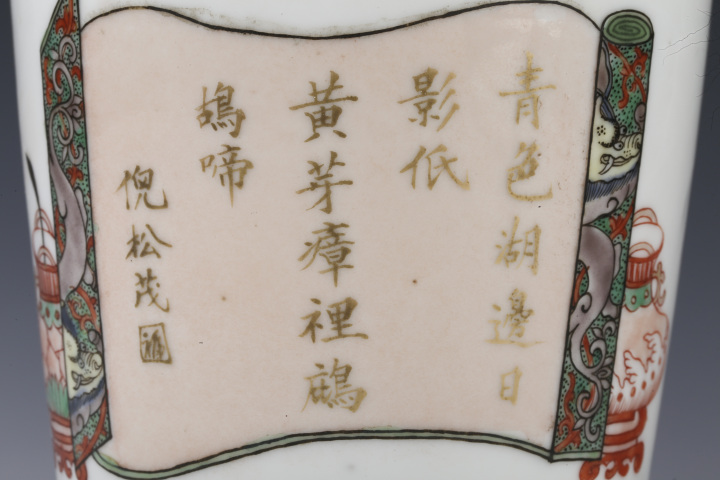 青色湖邊日
影低
黃芽瘴裡鷓
鴣啼
倪松茂